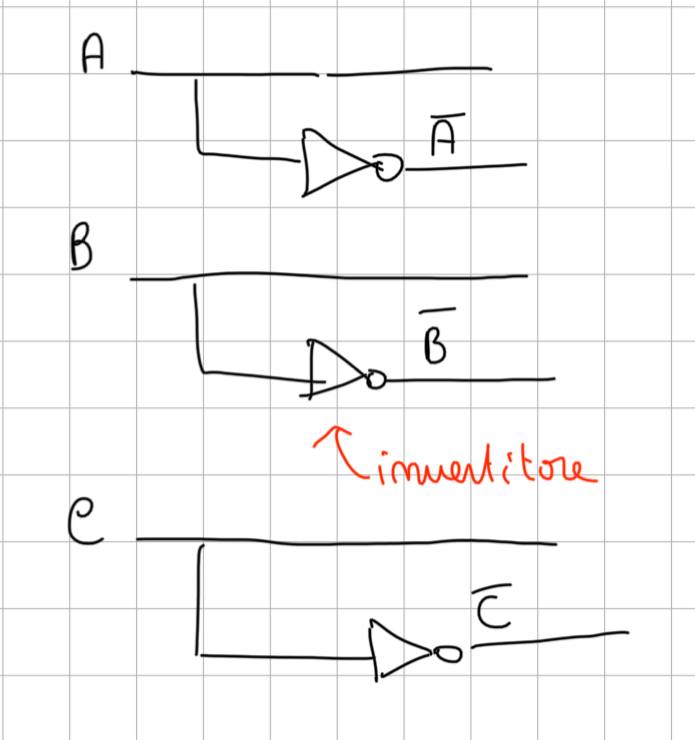 A
A̅
B
B̅
invertitore
C
C̅